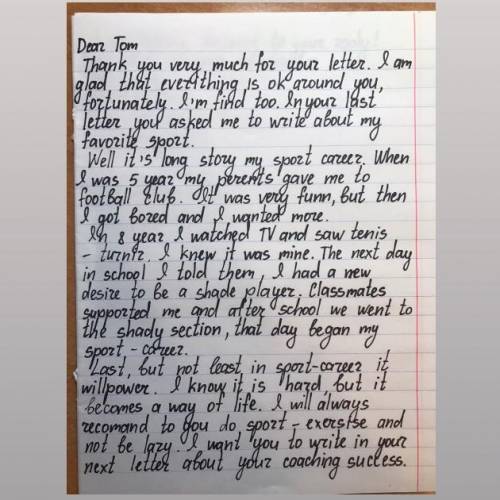 Dear Tom
Thank you very much for your letter. I am
glad that everything is ok around you,
fortunately. I'm find too. In your last
letter you asked me to write about my
favorite sport.
Well it's long story my sport career. When
I was 5 year my perents gave me to
football club. It was very funn, but then
I got bored and I wanted more.
In 8 year I watched TV and saw tenis
- turnir. I knew it was mine. The next day
in school I told them, I had a new
desire to be a shade player. Classmates
supported me and after school we went to
the shady section, that day began my
sport - career.
Last, but not least, in sport-career it
willpower. I know it is hard but it
becomes a way of life. I will always
recomand to you do sport - exerstse and
not be lazy. I want you to write in your
next letter about your coaching success.